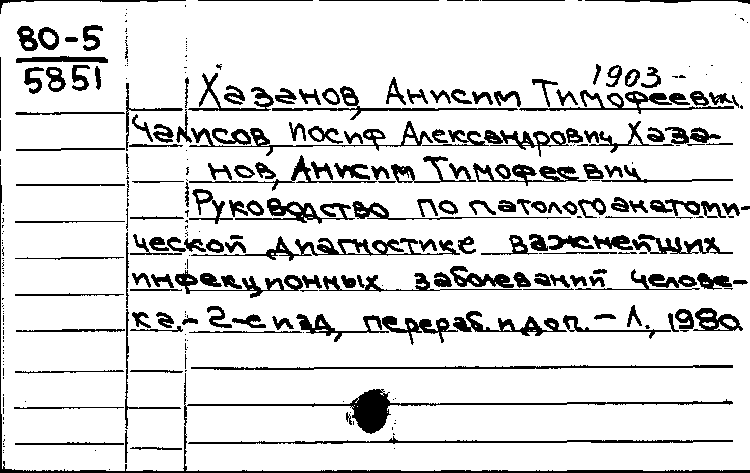 80-5
5851
1903-
Хазанов, Анисим Тимофеевич.
Чалисов, Иосиф Александрович, Хаза-
нов, Анисим Тимофеевич.
Руководство по патологоанатоми-
ческой диагностике важнейших
инфекционных заболеваний челове-
ка.- 2-е изд., перераб. и доп. - Л., 1980.